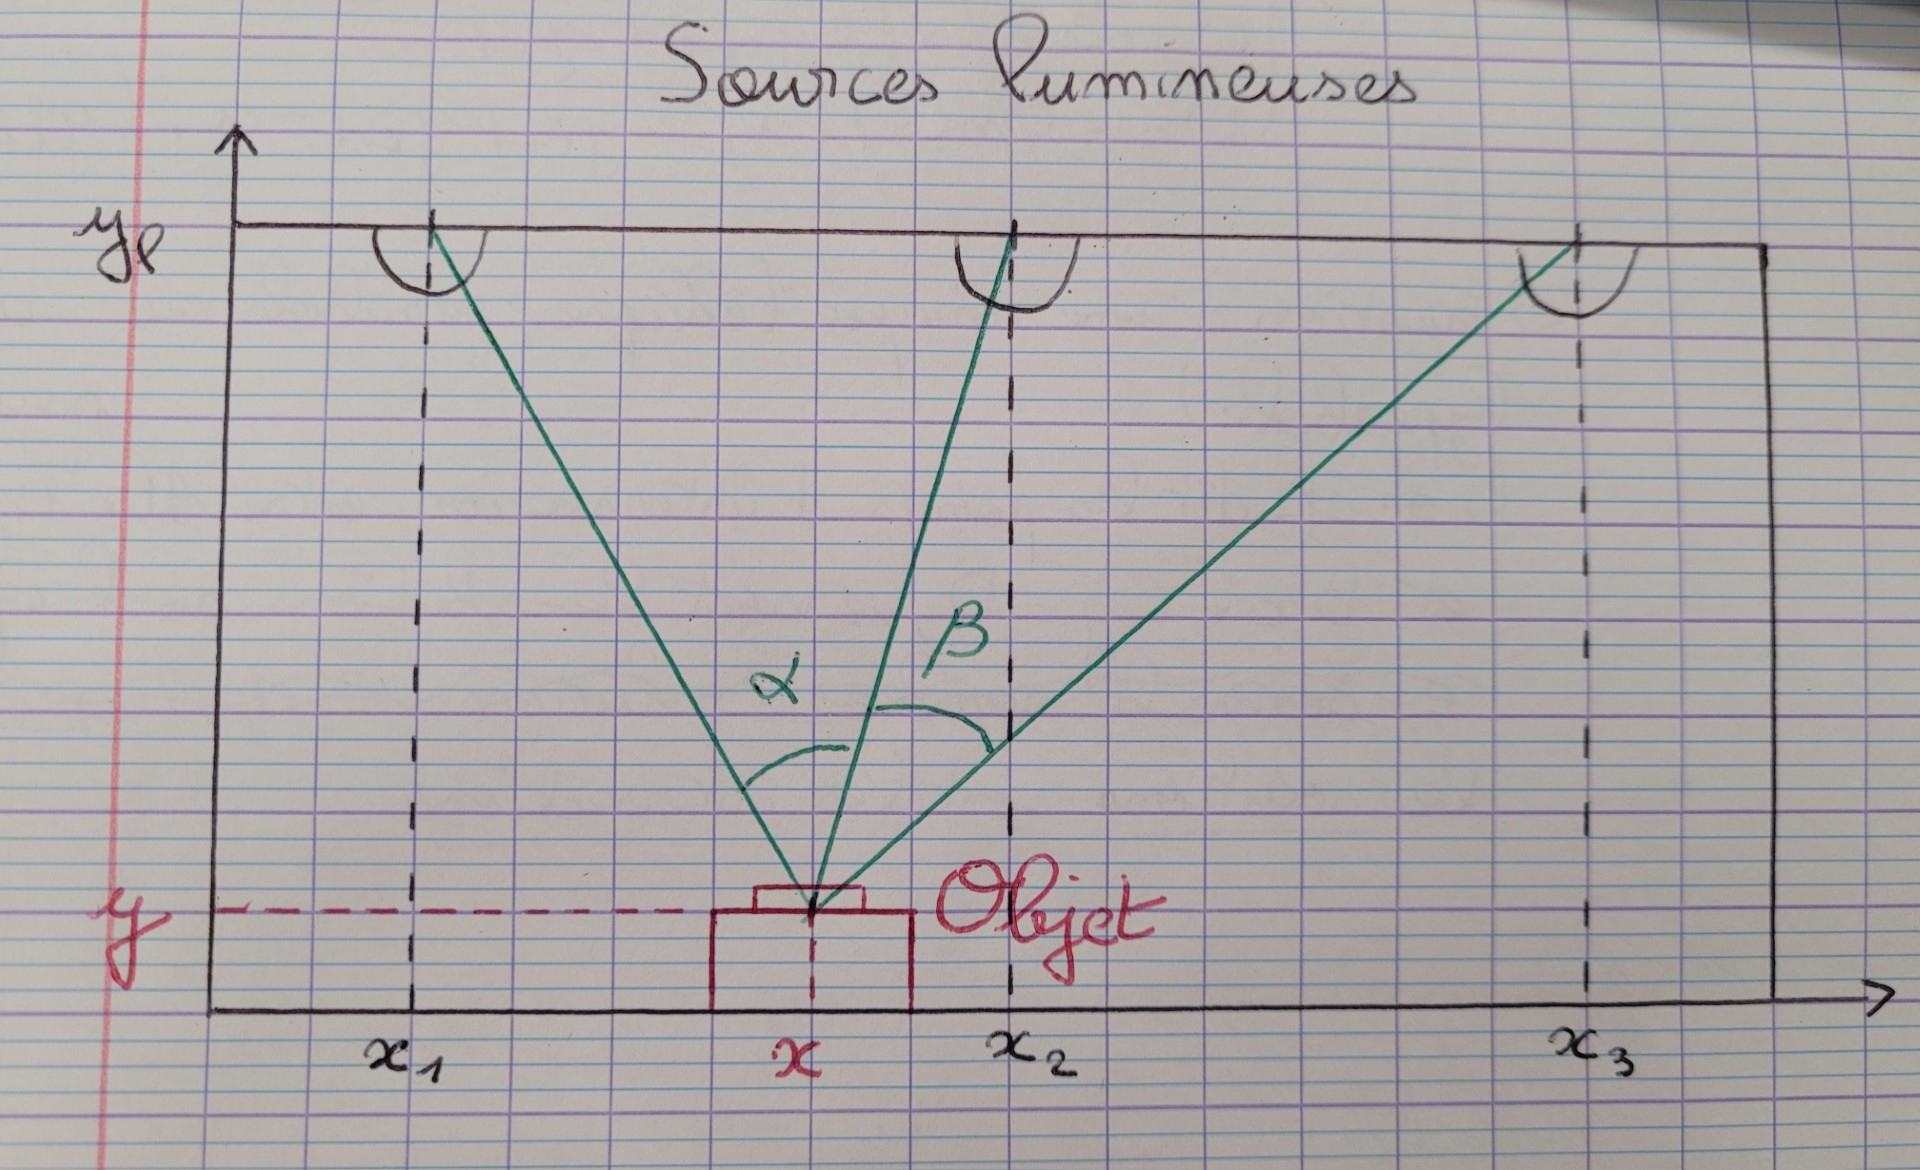 Sources lumineuses
yℓ
α
β
y
Objet
x1
x
x2
x3